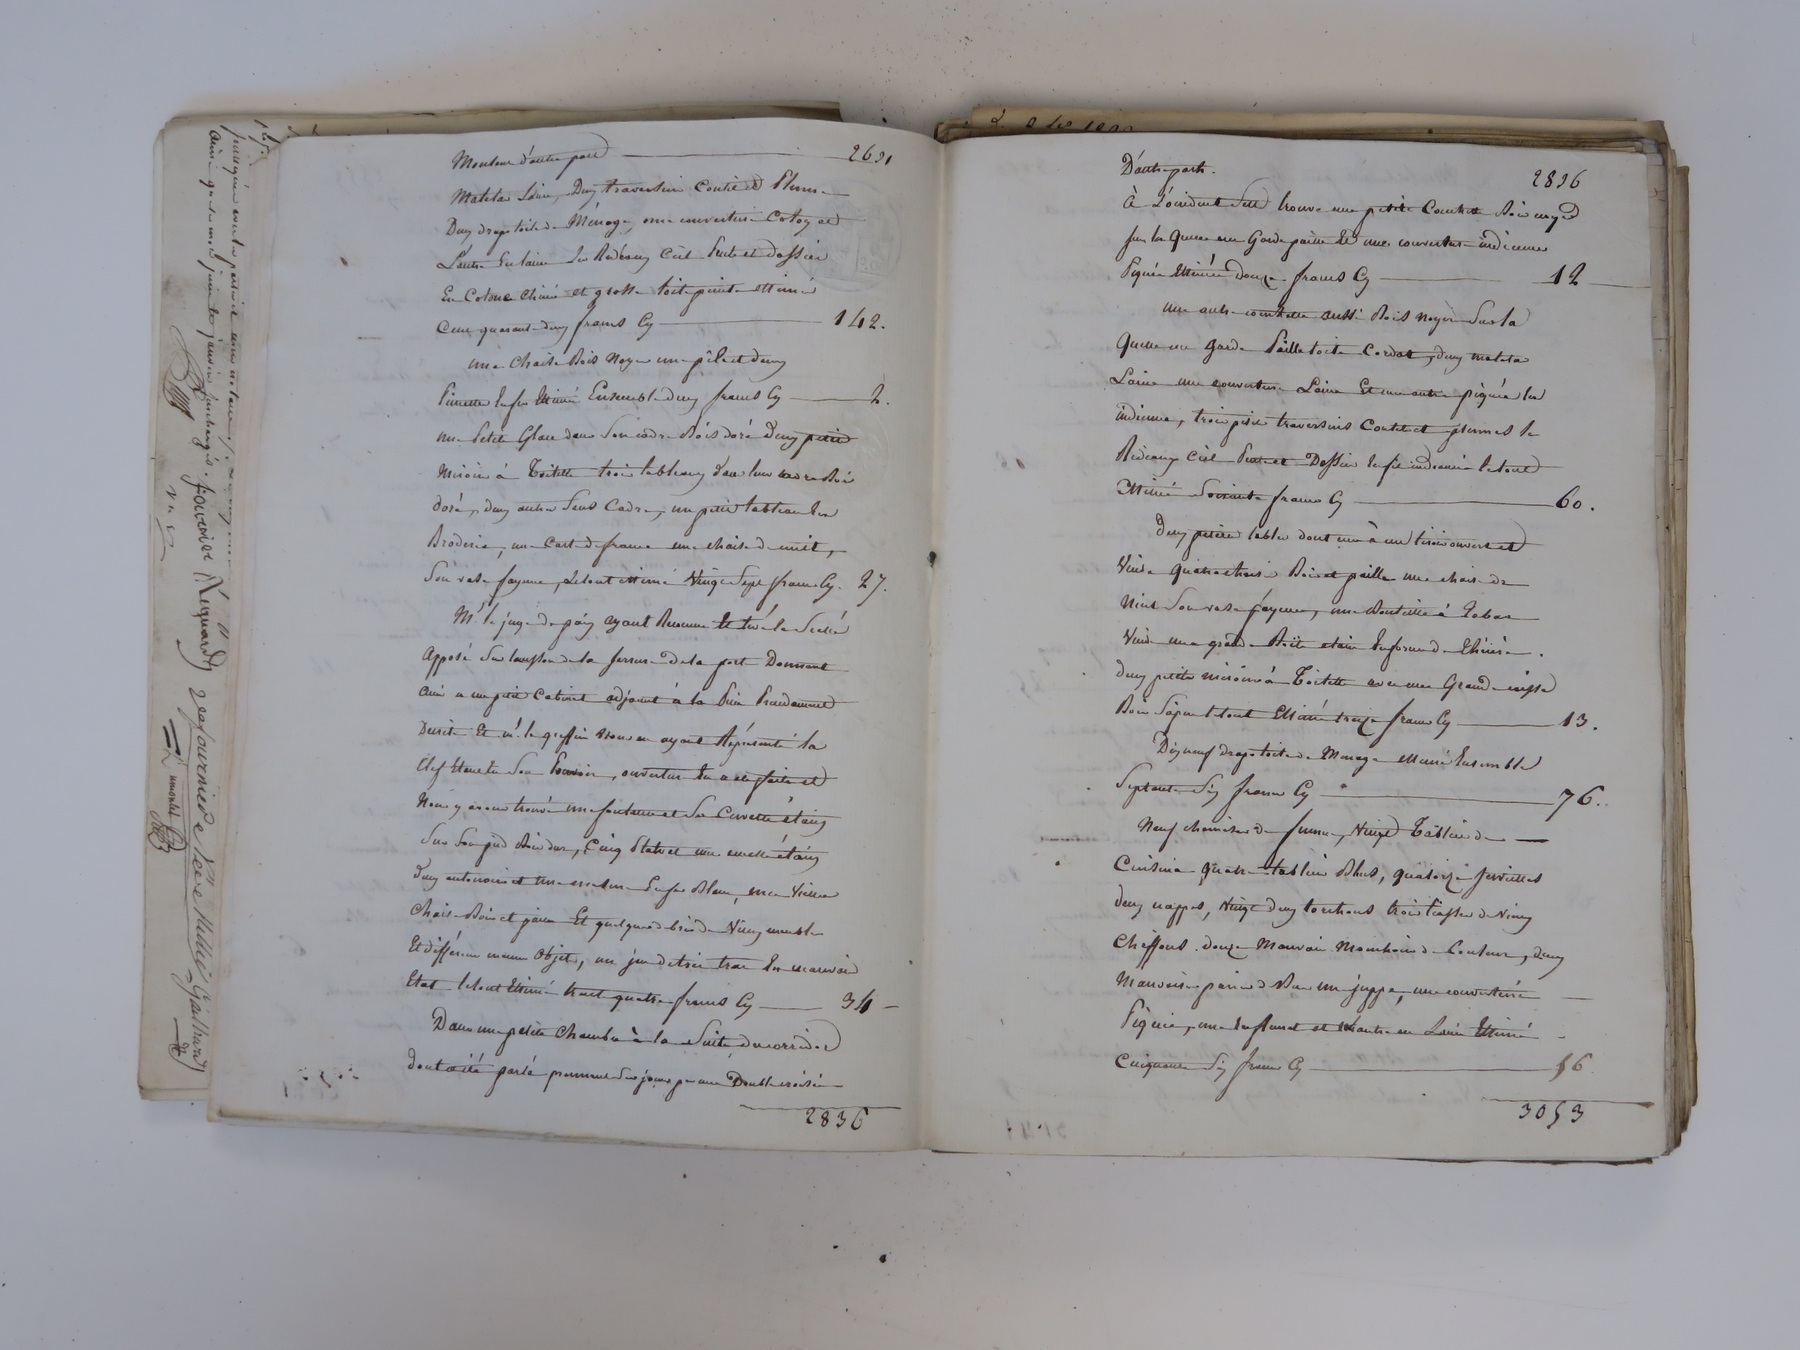 Montant d'autre part 2631
Matelas Laine, Deux traversins Coutil et Plume
Deux draps toile de Ménage, une couverture Coton et
L'autre en laine les Rideaux Ciel Pente et dossier
En Cotone chiné et grosse toile peinte estimé
Cent quarante deux francs Cy 142.
une Chaise Bois Noyer une pèle et deux
Pincette en fer Estimé Ensemble deux francs Cy 2.
une Petite Glace dans son cadre Bois doré Deux petits
Miroirs à Toilette trois tableaux dans leur cadre Bois
doré, deux autres Sans Cadre, un petit tableau En
Broderie, une Carte de france une chaise de nuit,
Son vase fayence, Letout estimé Vingt Sept francs Cy. 27.
Mr le juge de paix ayant Reconnu Et levé le Scellé
Apposé Sur la serrure de la porte Donnant
dans un petit Cabinet adjacent à la Pièce Précédament
Décrite Et Mr le greffier nous en ayant Représenté la
Clef Etant en Son Pouvoir, ouverture En a été faite et
Nous y avons trouvé une fontaine et Sa Cuvette étaing
Sur Son pied Bois dur, Cinq Plats et une écuelle étaing
deux entonnoirs et une mesure En fer Blanc, une Vieille
Chaise Bois et paille Et quelques débris de Vieux meubles
Et différens menus Objets, un jeu de tric trac En mauvais
Etat letout Estimé trente quatre francs Cy 34
Dans une petite Chambre à la Suite du corridor
dont a été parlé prennant Ses jours par une Double croisée
2836
D'autre part. 2836
À L'occident S'est trouvé une petite Couchette Bois noyer
Sur la Quelle une Garde paille Et une couverture indienne
Piquée Estimée Douze francs Cy 12
une autre couchette aussi Bois Noyer Sur la
Quelle une Garde Paille toile Cordat, deux matelas
Laine une couverture Laine Et une autre piquée En
indienne, trois petits traversins Coutil et plumes le
Rideaux Ciel Pente et Dossier En fil indienne letout
Estimé Soixante francs Cy 60.
Deux petites tables dont une à un tiroir ouvert et
Vuide quatre chaises Bois et paille une chaise de
Nuit Son vase fayence, une Bouteille à Tabac
Vuide une grande Boëte étain En forme de Théière.
deux petits miroirs à Toilette avec une Grande caisse
Bois Sapin letout Estimé treize francs Cy 13.
Dix neuf draps toile de Ménage estimé Ensemble
Septante Six francs Cy 76.
Neuf chemises de femme, Vingt Tabliers de
Cuisine Quatre tabliers Bleus, quatorze serviettes
deux nappes, Vingt deux torchons trois liasses de Vieux
Chiffons. douze Mauvais Mouchoirs de Couleur, deux
Mauvaises paires de Bas une juppe, une couverture
Piquée, une En flanel et L'autre en Laine Estimé
Cinquante Six francs Cy 56
3053